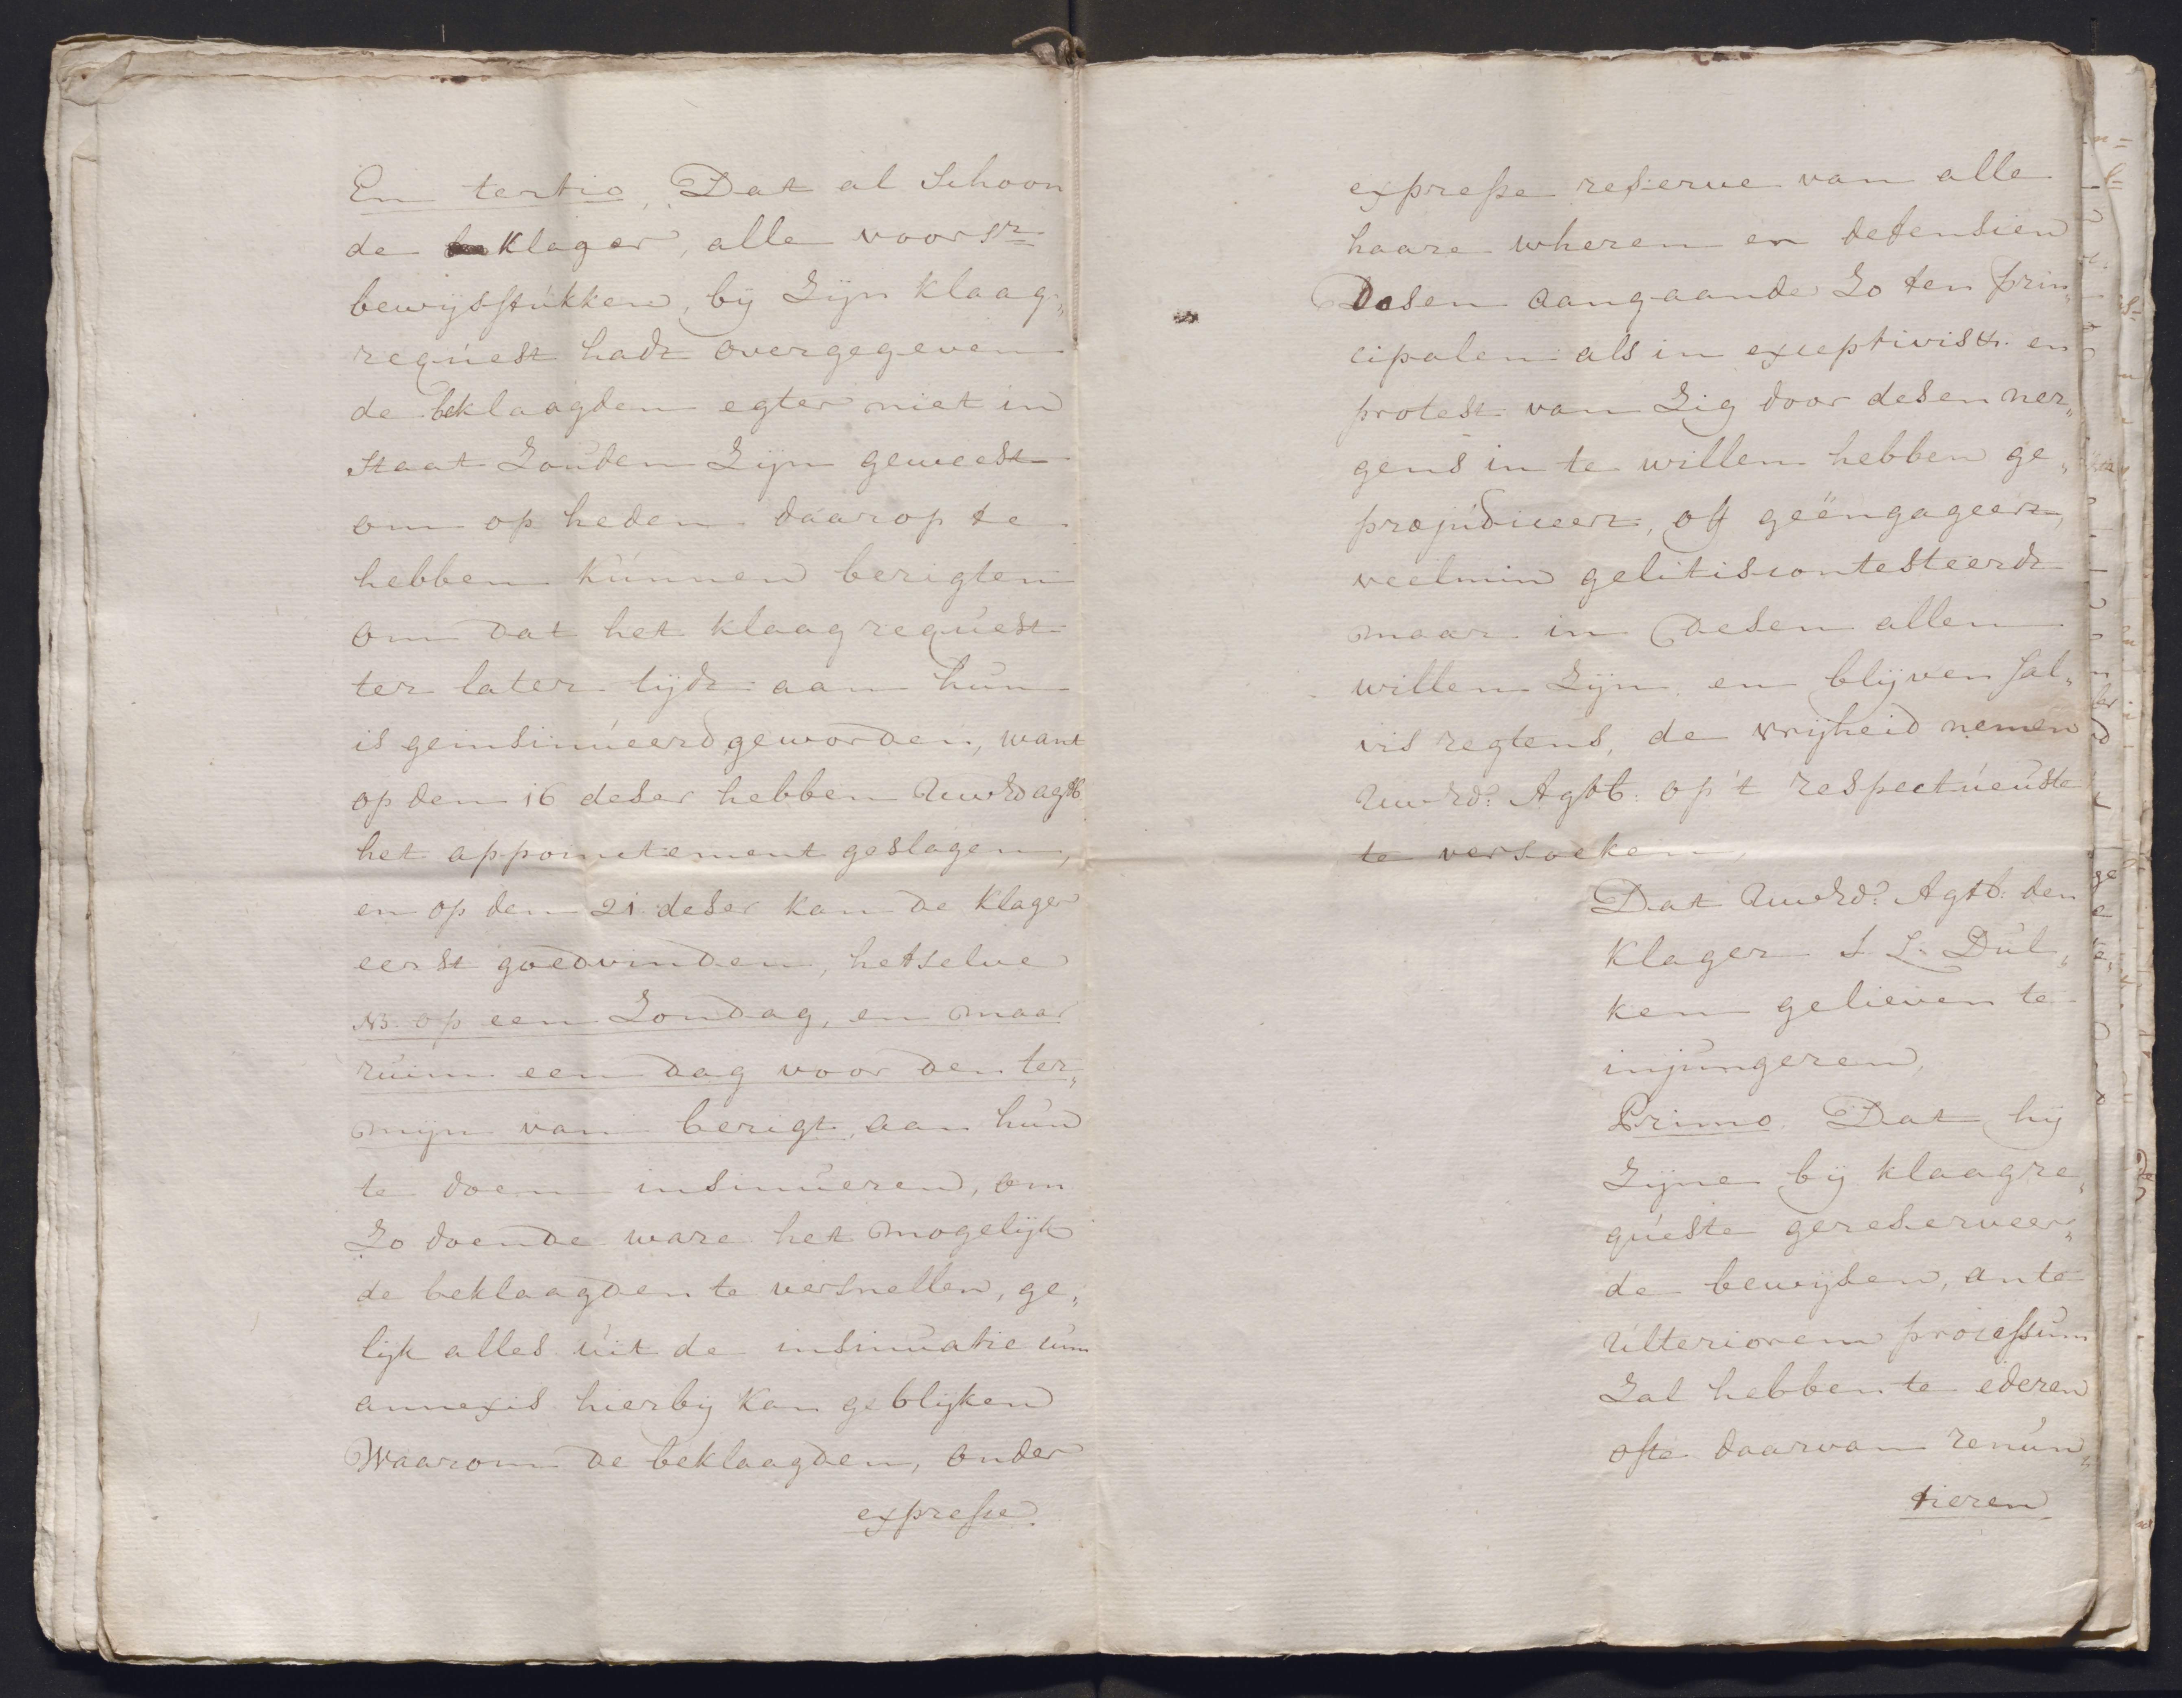 En tertio, Dat al Schoon
de Klager, alle voorsz
bewijsstukken, bij Zijn klaag„
request hadt overgegeven
de beklaagden egter niet in
Staat Zouden Zijn geweest
om op heden daarop te
hebben kunnen berigten
om dat het klaagrequest
ter later tijdt aan hun
is geinsinueerd geworden, want
op den 16 deser hebben Uwerd agtb
het appointement geslagen,
en op den 21 deser kan de Klager
eerst goedvinden, hetselve
NB. op een Zondag, en maar
ruim een dag voor den ter„
mijn van berigt, aan hun
te doen insinueren, om
Zo doende ware het mogelijk
de beklaagden te versnellen, ge„
lijk alles uit de insinuatie cum
annexis hierbij kan geblijken
Waarom de beklaagden, onder
expresse
expresse reserve van alle
haare wheren en defensien
Desen aangaande Zo ten prin„
cipalen als in exceptivis &. en
protest van Zig door desen ner„
gens in te willen hebben ge„
præjudiceert, off geëngageert,
veelmin gelitiscontesteerdt
maar in desen allen
willen Zijn en blijven sal„
vis regtens, de vrijheid nemen
Uwerd: Agtb: op 't respectueuste
te versoeken,
Dat Uwerd: Agtb: den
Klager S L. Dul„
ken gelieven te
injungeren,
Primo Dat hij
Zijne bij klaagre„
queste gereserveer„
de bewijsen, ante
ulteriorem processum
Zal hebben te ederen
ofte daarvan renun„
tieren